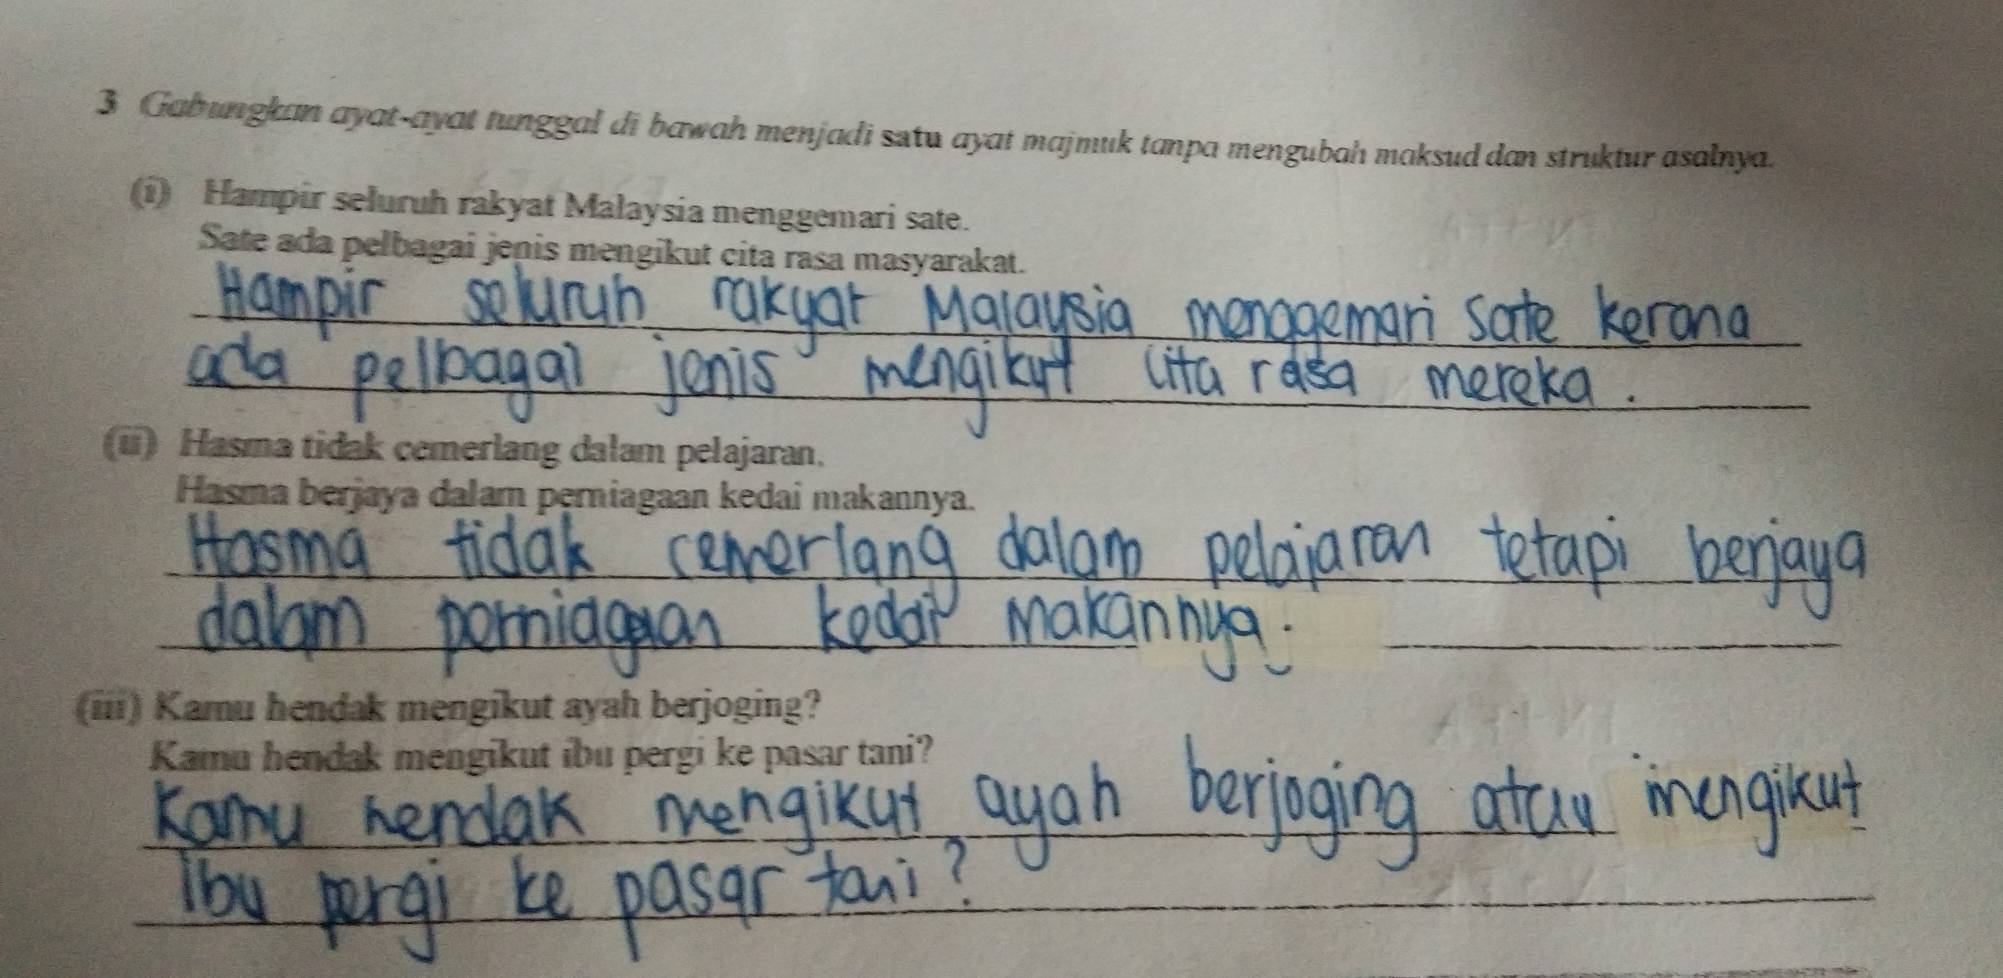 3 Gabungkan ayat-ayat tunggal di bawah menjadi satu ayat majmuk tanpa mengubah maksud dan struktur asalnya.
(i) Hampir seluruh rakyat Malaysia menggemari sate.
Sate ada pelbagai jenis mengikut cita rasa masyarakat.
Hampir seluruh rakyat Malaysia menggemari sate kerana
ada pelbagai jenis mengikut cita rasa mereka.
(ii) Hasma tidak cemerlang dalam pelajaran.
Hasma berjaya dalam perniagaan kedai makannya.
Hasma tidak cemerlang dalam pelajaran tetapi berjaya
dalam perniagaan kedai makannya.
(iii) Kamu hendak mengikut ayah berjoging?
Kamu hendak mengikut ibu pergi ke pasar tani?
Kamu hendak mengikut ayah berjoging atau mengikut
ibu pergi ke pasar tani?